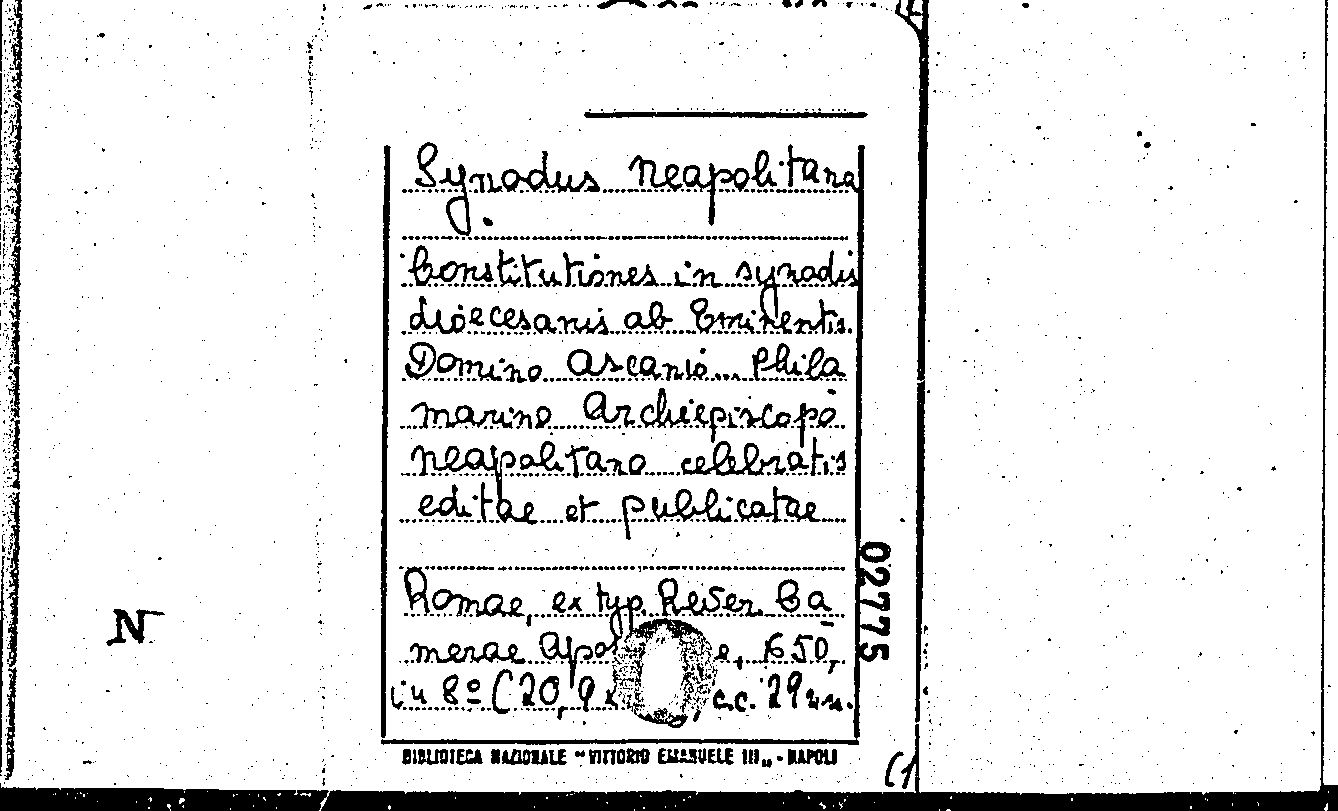 Synodus neapolitana
Constitutiones in synodis
dioecesanis ab Eminentis.
Domino Ascanio... Phila
marino Archiepiscopo
neapolitano celebratis
editae et publicatae
Romae, ex typ. Rever. Ca
merae 1650,
in 8º (20,9 x c.c. 29
02775
N
BIBLIOTECA NAZIONALE "VITTORIO EMANUELE III„ - NAPOLI
(1